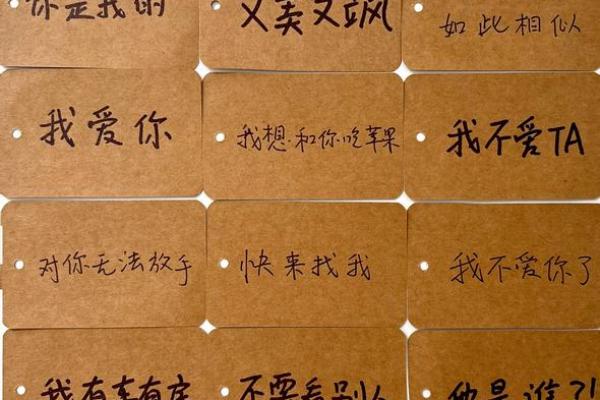 你是我的
又美又飒
如此相似
我爱你
我想和你吃苹果
我不爱TA
对你无法放手
快来找我
我不爱你了
我有车有房
不要看别人
他是谁?!